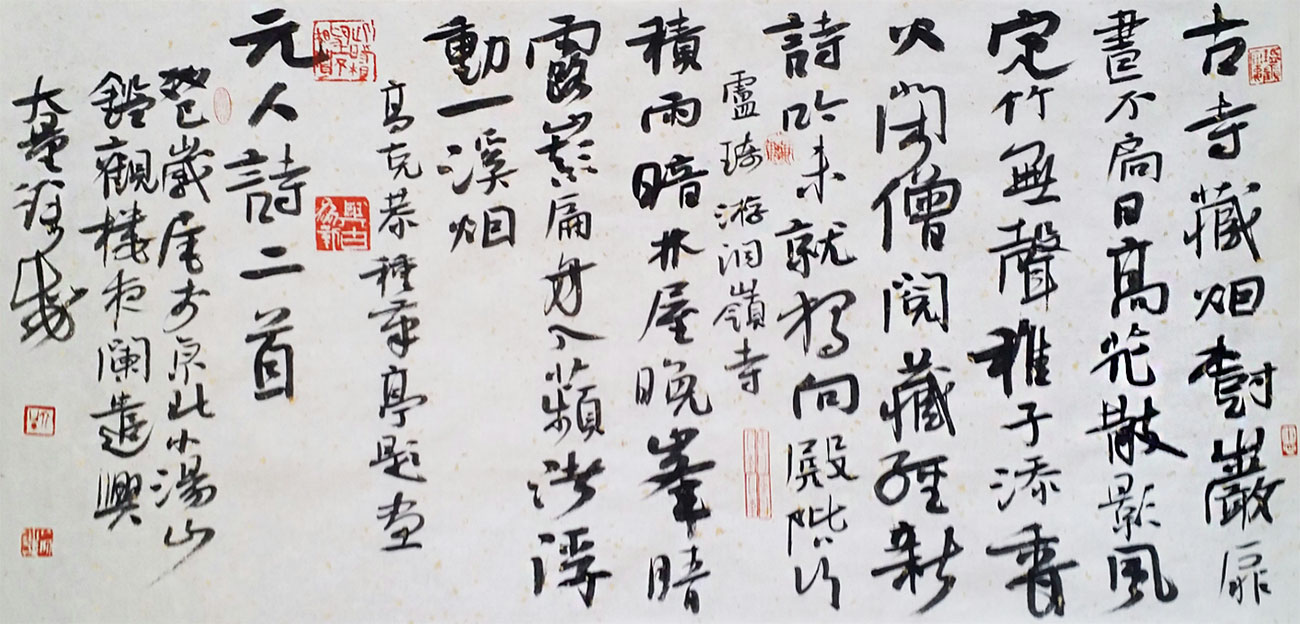 古寺藏烟樹巖扉
晝不扃日高花散影風
定竹無聲稚子添香
火閑僧閱藏經新
詩吟未就獨向殿階行
盧琦游洞嶺寺
積雨暗林屋晚峯晴
露巔扁舟入蘋渚浮
動一溪烟
高克恭種筆亭題畫
與古為新
元人詩二首
癸巳歲尾於京北小湯山
鑑觀樓夜闌遣興